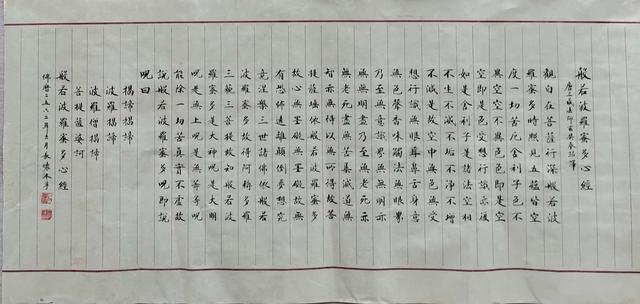 般若波羅蜜多心經
唐三藏法師玄奘奉詔譯
觀自在菩薩行深般若波
羅蜜多時照見五蘊皆空
度一切苦厄舍利子色不
異空空不異色色即是空
空即是色受想行識亦復
如是舍利子是諸法空相
不生不滅不垢不淨不增
不減是故空中無色無受
想行識無眼耳鼻舌身意
無色聲香味觸法無眼界
乃至無意識界無無明亦
無無明盡乃至無老死亦
無老死盡無苦集滅道無
智亦無得以無所得故菩
提薩埵依般若波羅蜜多
故心無罣礙無罣礙故無
有恐怖遠離顛倒夢想究
竟涅槃三世諸佛依般若
波羅蜜多故得阿耨多羅
三藐三菩提故知般若波
羅蜜多是大神呪是大明
呪是無上呪是無等等呪
能除一切苦真實不虛故
說般若波羅蜜多呪即說
呪曰
揭諦揭諦
波羅揭諦
波羅僧揭諦
菩提薩婆訶
般若波羅蜜多心經
佛曆二五六二年月沐手